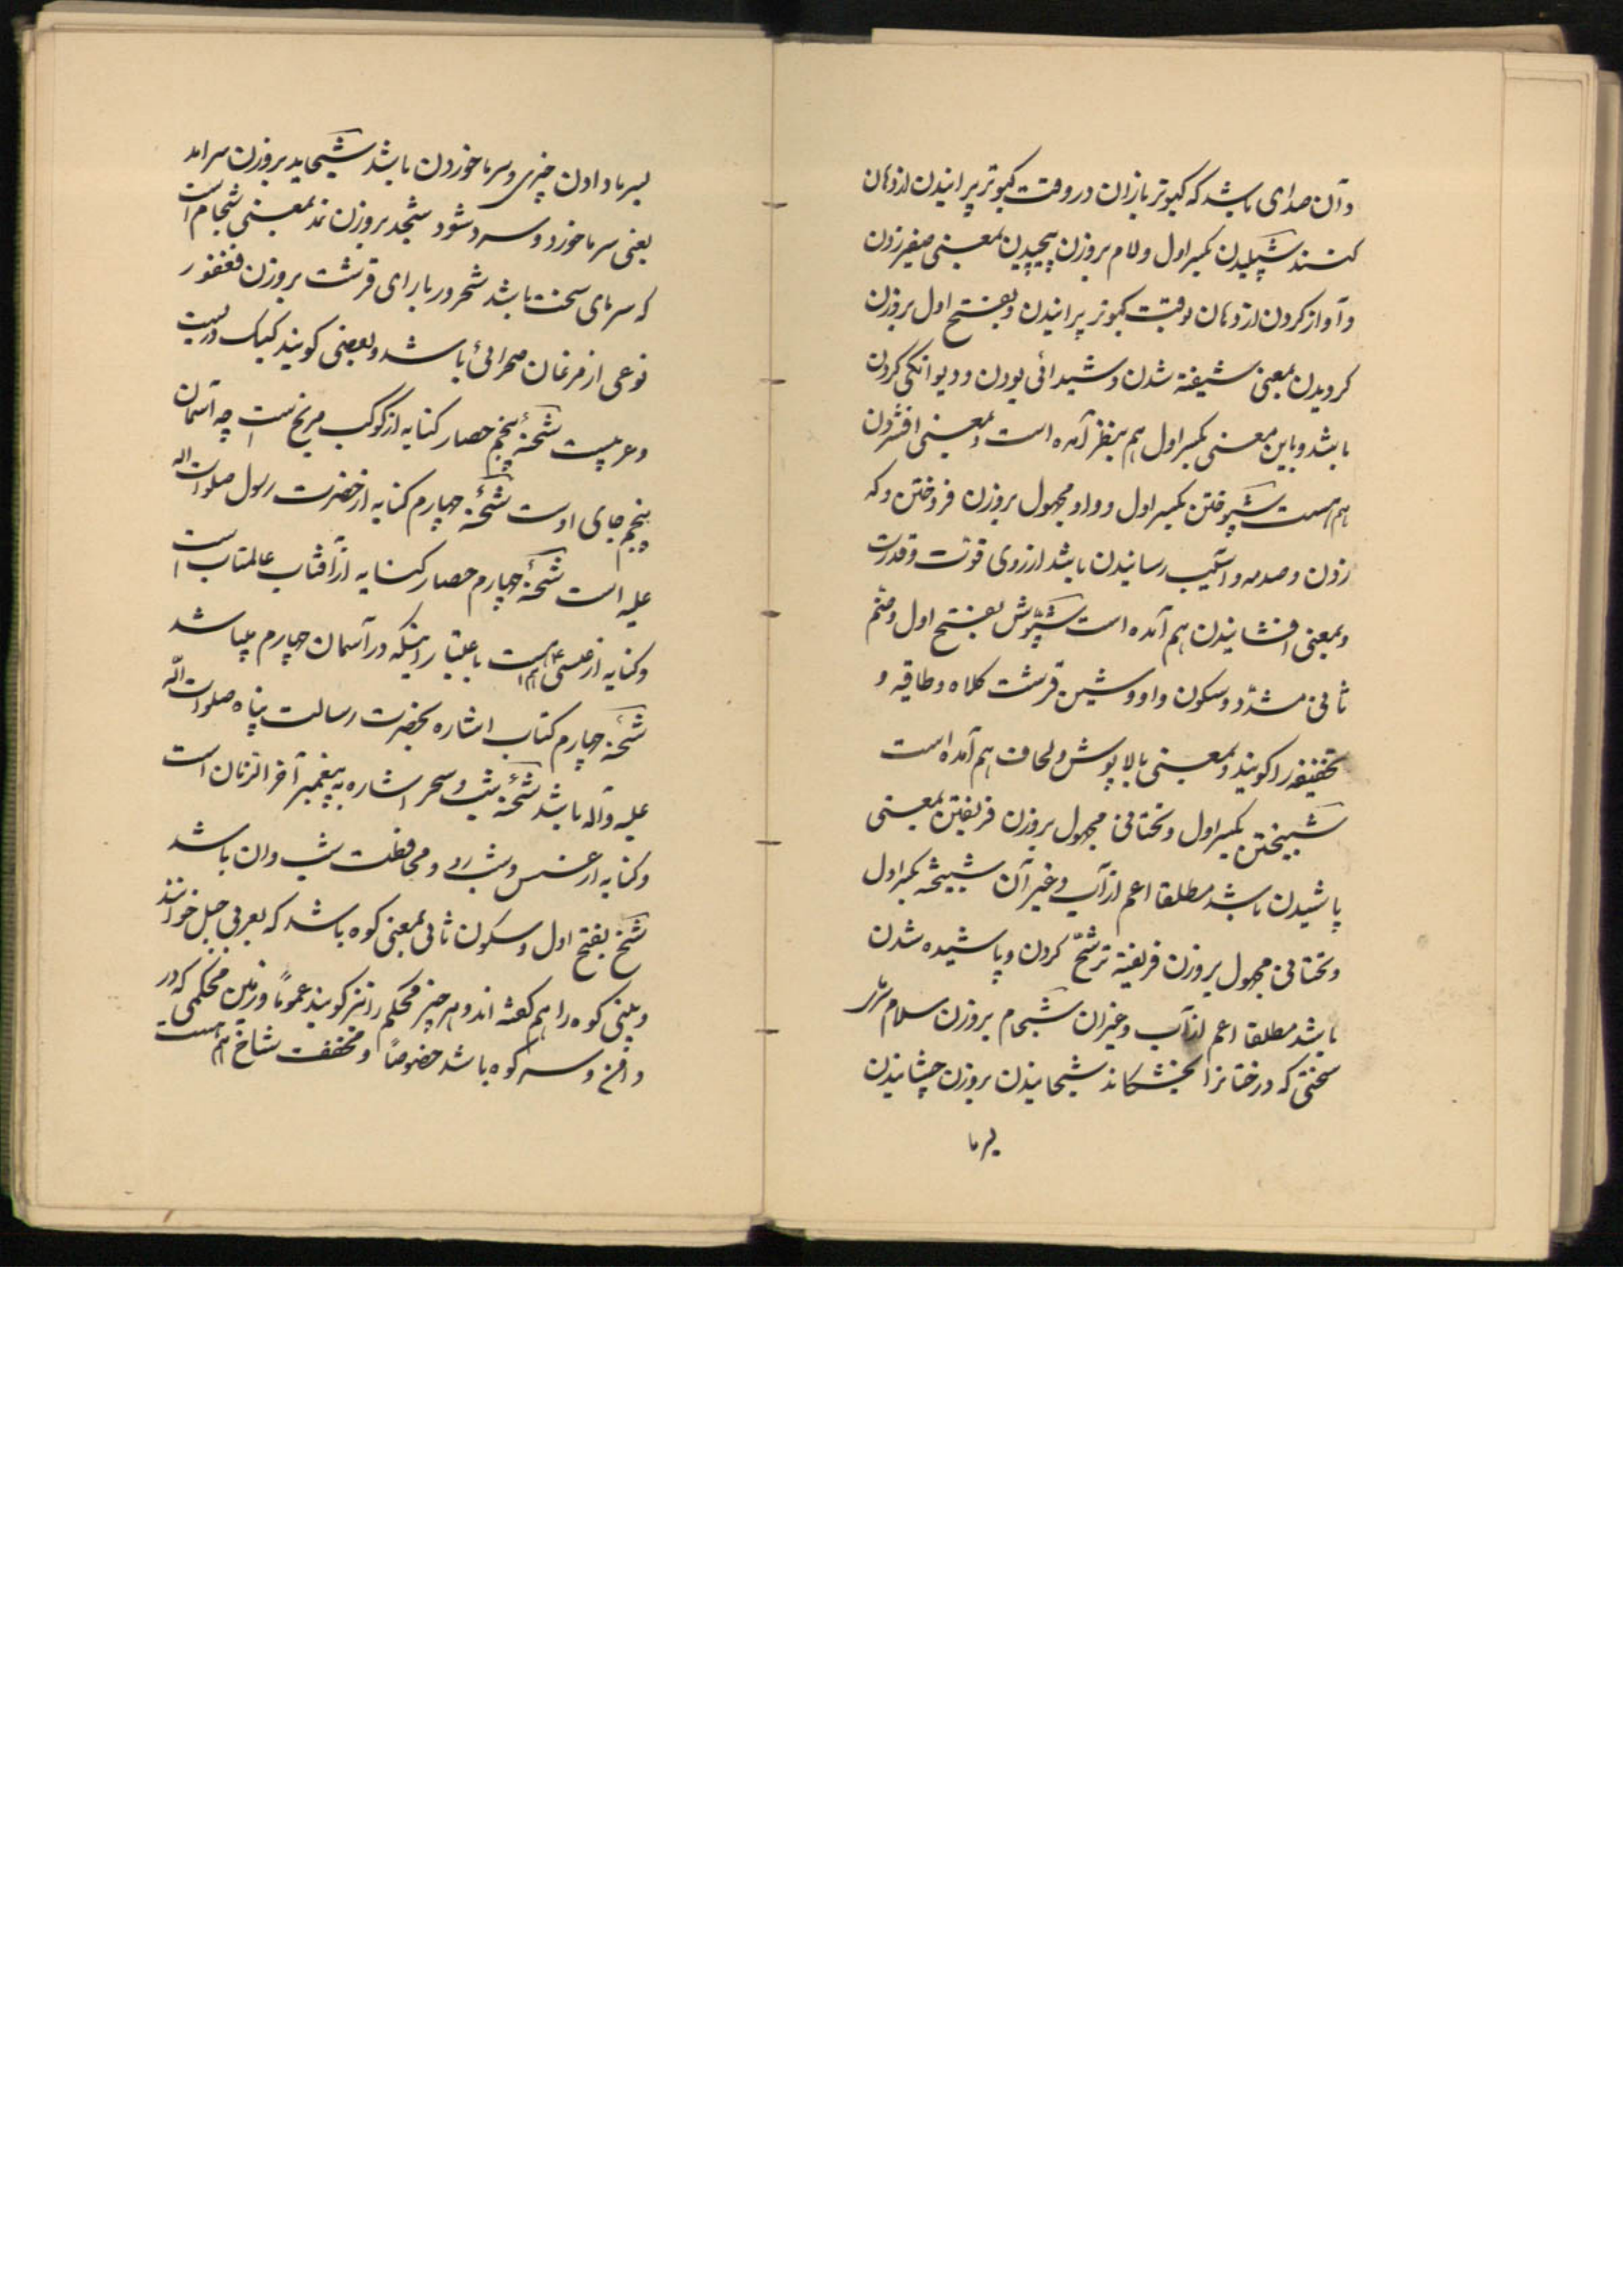 وآن صدای باشد که کبوتر بازان در وقت کبوتر پرانیدن از دهان
کنند شپلیدن بکسر اول ولام بروزن پیچیدن بمعنی صفیر زدن
وآواز کردن از دهان بوقت کبوتر پرانیدن وبفتح اول بروزن
کردیدن بمعنی شیفته شدن وشیدائی بودن ودیوانکی کردن
باشد وباین معنی بکسر اول هم بنظر آمده است وبمعنی افشردن
هم هست شپوختن بکسر اول وواو مجهول بروزن فروختن وکه
زدن وصدمه وآسیب رسانیدن باشد از روی قوّت وقدرت
وبمعنی افشانیدن هم آمده است شپّوش بفتح اول وضم
ثانی مشدّد وسکون واو وشین قرشت کلاه وطاقیه و
تخفیفه را کویند وبمعنی بالا پوش ولحاف هم آمده است
شبیختن بکسر اول وتحتانی مجهول بروزن فریفتن بمعنی
پاشیدن باشد مطلقا اعم از آب وغیر آن شبیخته بکسر اول
وتحتانی مجهول بروزن فریفته ترشّح کردن وپاشیده شدن
باشد مطلقا اعم از آب وغیران شجام بروزن سلام سرمای
سختی که درختانرا بخشکاند شجانیدن بروزن چشانیدن
بسرما
بسرما دادن چیزی وسرما خوردن باشد شجاید بروزن سراید
یعنی سرما خورد وسرد شود شجد بروزن ند بمعنی شجام است
که سرمای سخت باشد شحرور بارای قرشت بروزن فغفور
نوعی از مرغان صحرائی باشد وبعضی کویند کبک دریست
وعربیست شحنهٔ پنجم حصار کنایه از کوکب مریخ است چه آسمان
پنجم جای اوست شحنهٔ چهارم کنایه از حضرت رسول صلوات الله
علیه است شحنهٔ چهارم حصار کنایه از آفتاب عالمتاب است
وکنایه از عیسیٰ ع هم هست باعتبار اینکه در آسمان چهارم میباشد
شحنهٔ چهارم کتاب اشاره بحضرت رسالت پناه صلوات اللّه
علیه وآله باشد شحنهٔ شب وسحر اشاره به پیغمبر آخر الزمان است
وکنایه از عسس وشب رو ومحافظت شب روان باشد
شخ بفتح اول وسکون ثانی بمعنی کوه باشد که بعربی جبل خوانند
وبینی کوه را هم کفته اند وهر چیز محکم را نیز کویند عموماً وزمین محکمی که در
دامن وسر کوه باشد خصوصاً ومخفف شاخ هم هست